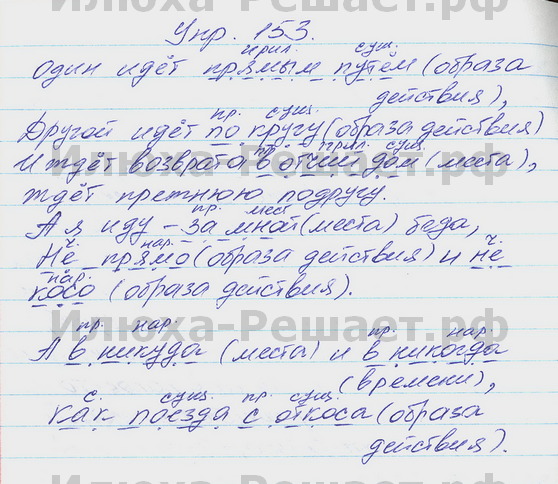 Илюха-Решает.рф
Упр. 153.
прил. сущ.
Один идёт прямым путем (образа
действия),
пр. сущ.
Другой идёт по кругу (образа действия)
пр. прил. сущ.
И ждёт возврата в отчий дом (места),
ждёт прежнюю подругу.
пр. мест.
А я иду – за мной (места) беда,
ч. нар. ч.
Не прямо (образа действия) и не
нар.
косо (образа действия).
Илюха-Решает.рф
пр. нар. пр. нар.
А в никуда (места) и в никогда
(времени),
с. сущ. пр. сущ.
как поезда с откоса (образа
действия).
Илюха-Решает.рф